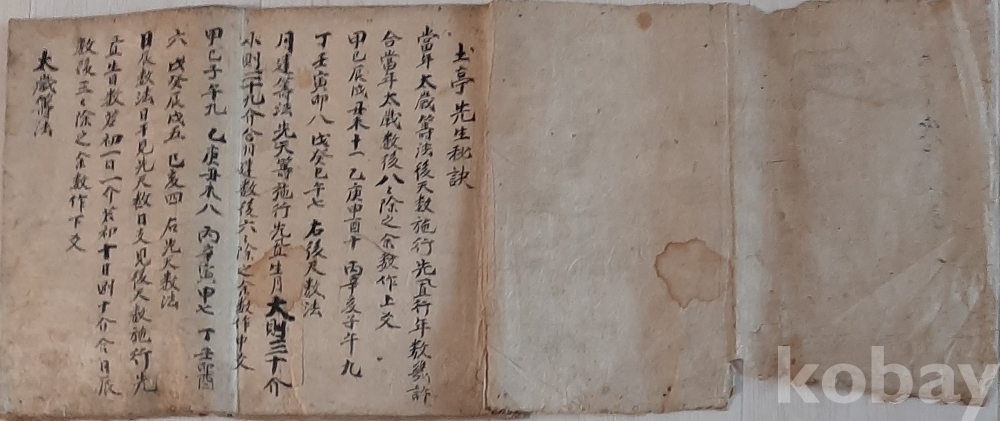 土亭先生秘訣
當年太歲筭法後天数施行先置行年数幾許
合當年太歲数後八〻除之余数作上爻
甲己辰戌丑未十一 乙庚申酉十 丙辛亥子午九
丁壬寅卯八 戊癸巳午七 右後天数法
月建筭法先天筭施行先置生月大則三十介
小則二十九介合月建数後六〻除之余数作中爻
甲己子午九 乙庚丑未八 丙辛寅申七 丁壬酉
六 戊癸辰戌五 巳亥四 右先天数法
日辰数法日干見先天数日支見後天数施行先
置生日数若初一日一介若初十日則十介合日辰
数後三〻除之余数作下爻
太歲筭法
kobay